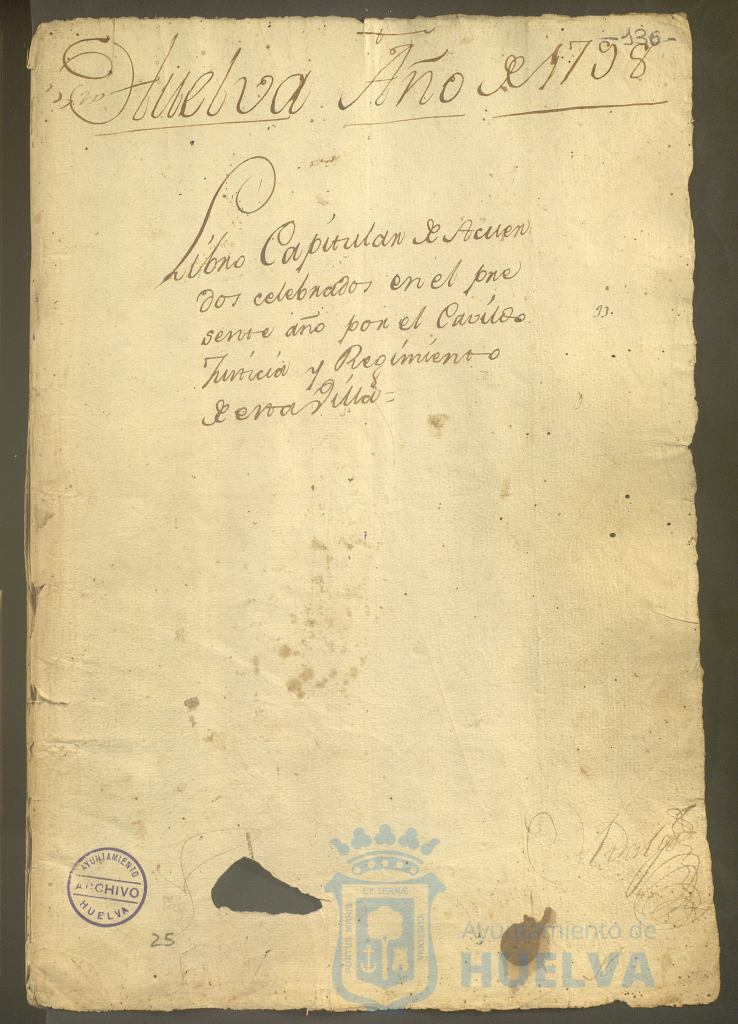 -136-
Huelva Año de 1798
Libro Capitular de Acuer
dos celebrados en el pre
sente año por el Cavildo
Justicia y Regimiento
de esta Villa=
AYUNTAMIENTO
ARCHIVO
HUELVA
25
PORTUS MARIS
ET TERRAE
CUSTODIA
Ayuntamiento de
HUELVA